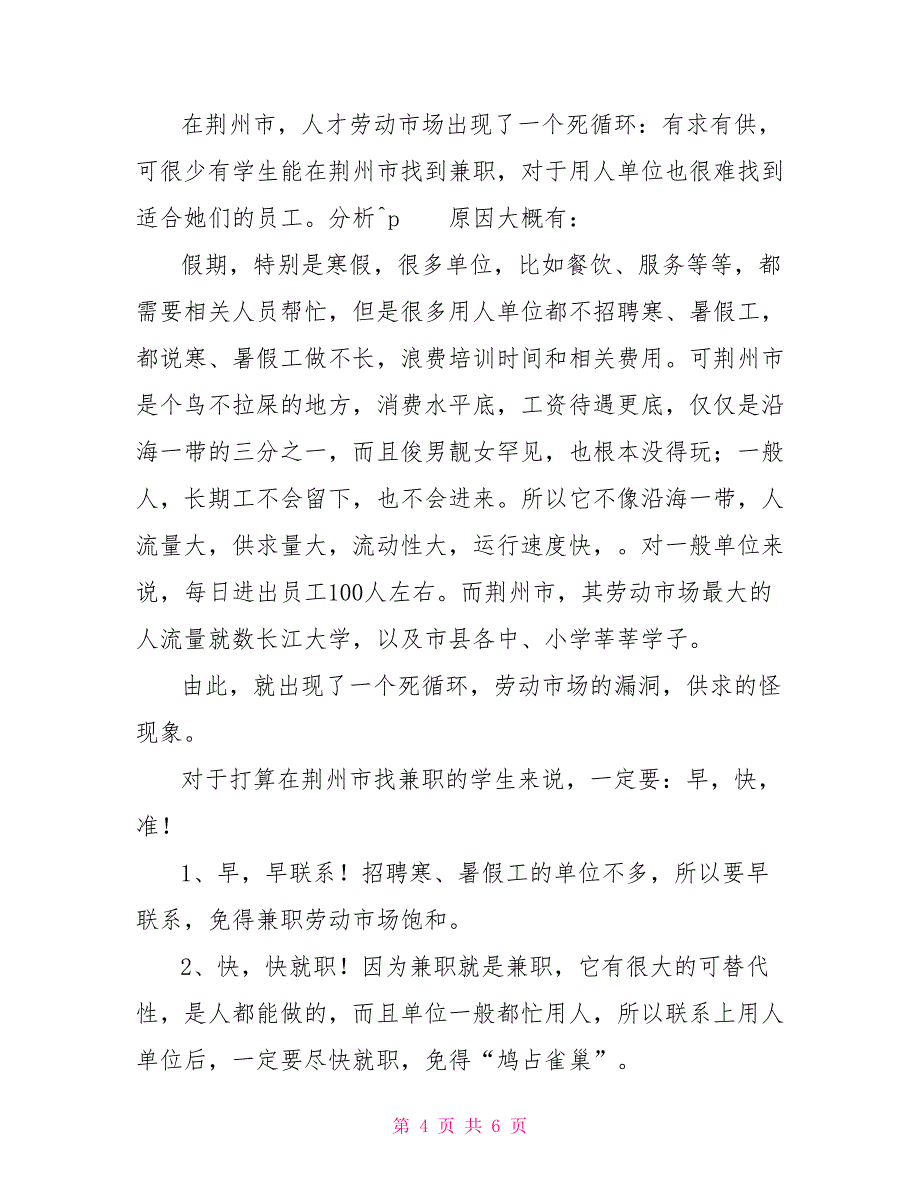 在荆州市，人才劳动市场出现了一个死循环：有求有供，
可很少有学生能在荆州市找到兼职，对于用人单位也很难找到
适合她们的员工。分析^p　　原因大概有：
假期，特别是寒假，很多单位，比如餐饮、服务等等，都
需要相关人员帮忙，但是很多用人单位都不招聘寒、暑假工，
都说寒、暑假工做不长，浪费培训时间和相关费用。可荆州市
是个鸟不拉屎的地方，消费水平底，工资待遇更底，仅仅是沿
海一带的三分之一，而且俊男靓女罕见，也根本没得玩；一般
人，长期工不会留下，也不会进来。所以它不像沿海一带，人
流量大，供求量大，流动性大，运行速度快，。对一般单位来
说，每日进出员工100人左右。而荆州市，其劳动市场最大的
人流量就数长江大学，以及市县各中、小学莘莘学子。
由此，就出现了一个死循环，劳动市场的漏洞，供求的怪
现象。
对于打算在荆州市找兼职的学生来说，一定要：早，快，
准！
1、早，早联系！招聘寒、暑假工的单位不多，所以要早
联系，免得兼职劳动市场饱和。
2、快，快就职！因为兼职就是兼职，它有很大的可替代
性，是人都能做的，而且单位一般都忙用人，所以联系上用人
单位后，一定要尽快就职，免得“鸠占雀巢”。
第 4 页 共 6 页